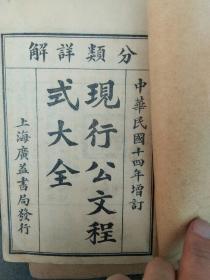 分類詳解
中華民國十四年增訂
現行公文程
式大全
上海廣益書局發行